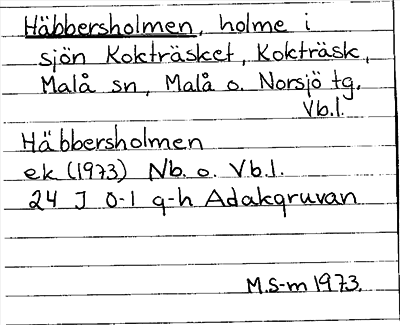 Häbbersholmen, holme i
sjön Kokträsket, Kokträsk,
Malå sn, Malå o. Norsjö tg.
Vb.l.
Häbbersholmen
ek (1973) Nb. o. Vb.l.
24 J 0-1 g-h Adakgruvan
M.S-m 1973.